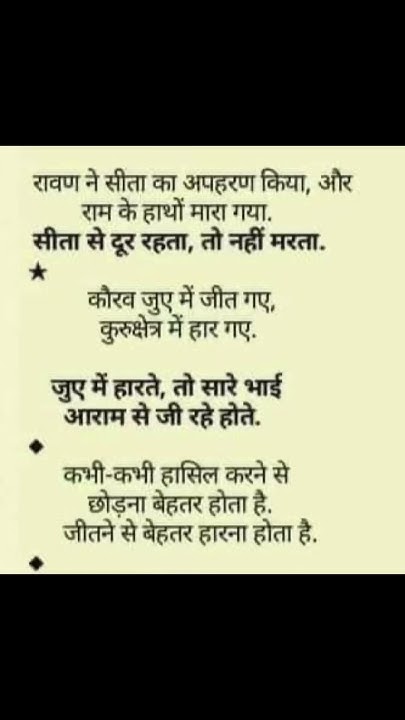 रावण ने सीता का अपहरण किया, और
राम के हाथों मारा गया.
सीता से दूर रहता, तो नहीं मरता.
★
कौरव जुए में जीत गए,
कुरुक्षेत्र में हार गए.
जुए में हारते, तो सारे भाई
आराम से जी रहे होते.
◆
कभी-कभी हासिल करने से
छोड़ना बेहतर होता है.
जीतने से बेहतर हारना होता है.
◆